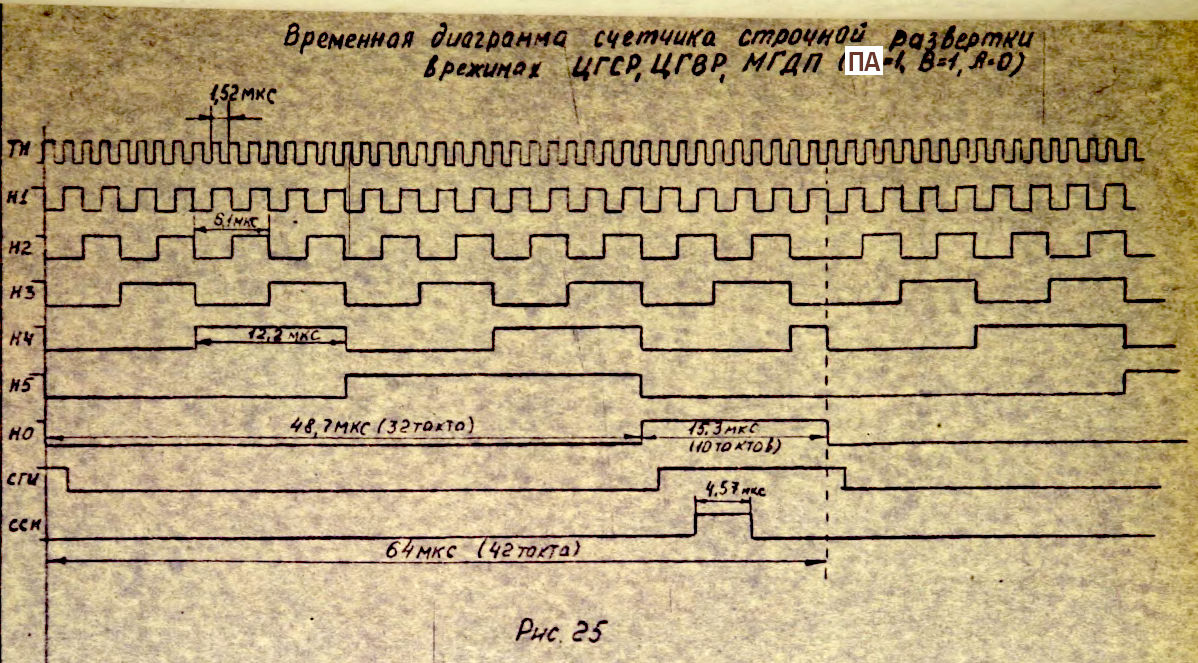 Временная диаграмма счетчика строчной развертки
в режимах ЦГСР, ЦГВР, МГДП (ПА=1, В=1, А=0)
1,52 мкс
ТИ
Н1
6,1 мкс
Н2
Н3
12,2 мкс
Н4
Н5
48,7 мкс (32 такта)
15,3 мкс
Н0
(10 тактов)
СГИ
4,57 мкс
ССИ
64 мкс (42 такта)
Рис. 25